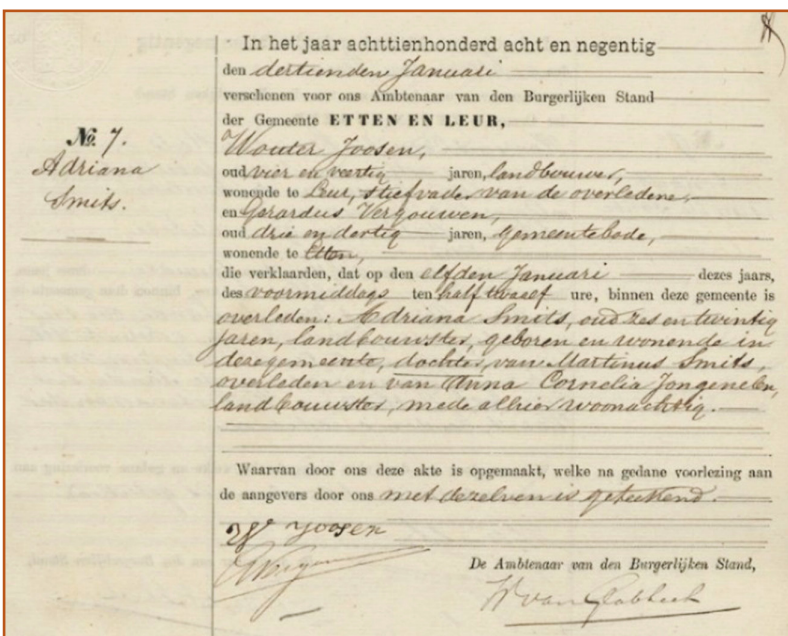 In het jaar achttienhonderd acht en negentig
den dertienden Januari
verschenen voor ons Ambtenaar van den Burgerlijken Stand
der Gemeente ETTEN EN LEUR,
No. 7.
Adriana
Smits.
Wouter Joosen,
oud vier en veertig jaren, landbouwer,
wonende te Leur, stiefvader van de overledene,
en Gerardus Vergouwen,
oud drie en dertig jaren, gemeentebode,
wonende te Etten,
die verklaarden, dat op den elfden Januari dezes jaars,
des voormiddags ten half twaalf ure, binnen deze gemeente is
overleden: Adriana Smits, oud zes en twintig
jaren, landbouwster, geboren en wonende in
deze gemeente, dochter van Martinus Smits,
overleden en van Anna Cornelia Jongenelen,
landbouwster, mede alhier woonachtig.
Waarvan door ons deze akte is opgemaakt, welke na gedane voorlezing aan
de aangevers door ons met dezelven is geteekend.
W Joosen
De Ambtenaar van den Burgerlijken Stand,